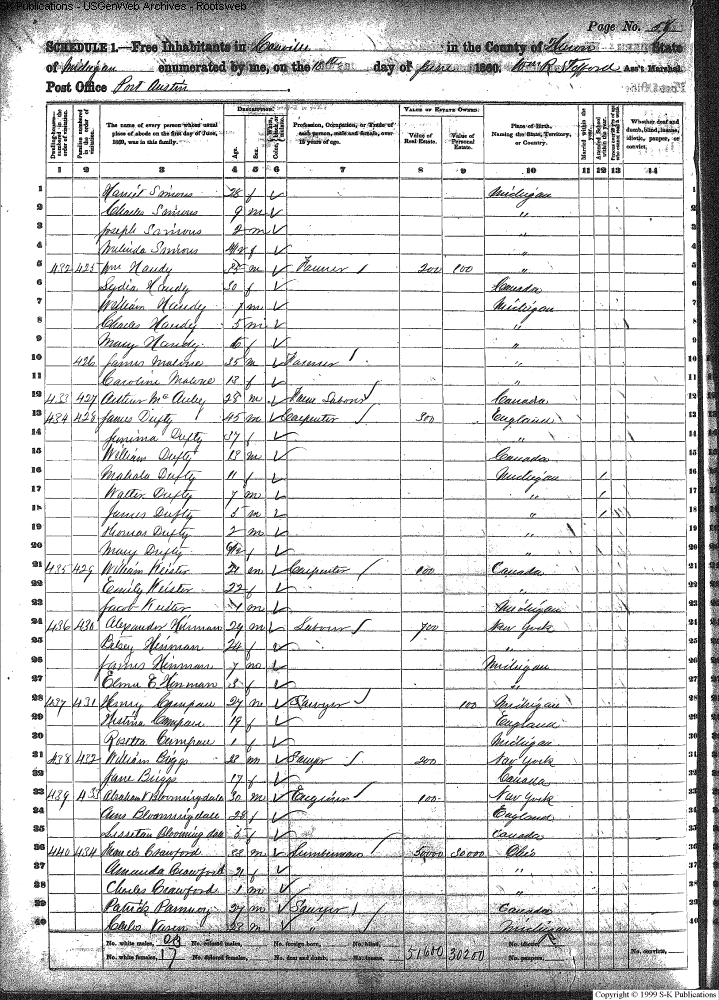 S-K Publications - USGenWeb Archives - Rootsweb
Page No.
SCHEDULE 1.—Free Inhabitants in in the County of Huron State
of Michigan enumerated by me, on the day of June 1860. Wm R. Ass't Marshal.
Post Office Port Austin
Dwelling-houses—numbered in the order of visitation.
Families numbered in the order of visitation.
The name of every person whose usual place of abode on the first day of June, 1860, was in this family.
DESCRIPTION.
Age.
Sex.
Color, White, black, or mulatto.
Profession, Occupation, or Trade of each person, male and female, over 15 years of age.
VALUE OF ESTATE OWNED.
Value of Real Estate.
Value of Personal Estate.
Place of Birth, Naming the State, Territory, or Country.
Married within the year.
Attended School within the year.
Whether deaf and dumb, blind, insane, idiotic, pauper, or convict.
1 2 3 4 5 6 7 8 9 10 11 12 13 14
1 Harriet Simons 28 f Michigan
2 Charles Simons 9 m "
3 Joseph Simons 2 m "
4 Melinda Simons f "
5 432 425 Wm Handy m Farmer 200 100 "
6 Lydia Handy 30 f Canada
7 William Handy 7 m Michigan
8 Charles Handy 5 m "
9 Mary Handy f "
10 426 James Malone 25 m Farmer "
11 Caroline Malone 18 f "
12 433 427 Arthur 28 m Farm Laborer Canada
13 434 428 James Dufty 45 m Carpenter 300 England
14 Jemima Dufty 37 f "
15 William Dufty 13 m Canada
16 Mahala Dufty 11 f Michigan 1
17 Walter Dufty 7 m " 1
18 James Dufty 5 m " 1
19 Thomas Dufty 2 m "
20 Mary Dufty f "
21 435 429 William m Carpenter 100 Canada
22 Emily 22 f "
23 Jacob 1 m Michigan
24 436 430 Alexander Hinman 29 m Labour 700 New York
25 Betsy Hinman 24 f "
26 James Hinman 7 m Michigan
27 E Hinman 3 f "
28 437 431 Henry Campau 27 m Sawyer 100 Michigan
29 Campau 19 f England
30 Campau 1 f Michigan
31 438 432 William Biggs 23 m 200 New York
32 Jane Biggs 17 f Canada
33 439 433 Abraham Bloomingdale 30 m Engineer 100 New York
34 Ann Bloomingdale 28 f England
35 f Canada
36 440 434 Francis Crawford 33 m Lumberman 50000 30000 Ohio
37 Amanda Crawford 21 f "
38 Charles Crawford 1 m "
39 Patrick 27 m Sawyer Canada
40 23 m " Michigan
No. white males, 23 No. colored males, No. foreign born, No. blind, 51600 30200 No. idiotic, No. convicts,
No. white females, 17 No. colored females, No. deaf and dumb, No. insane, No. paupers,
Copyright © 1999 S-K Publications